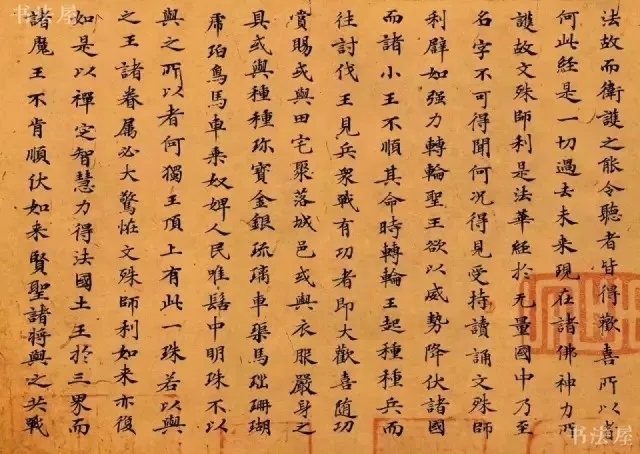 书法屋
法故而衛護之能令聽者皆得歡喜所以者
何此經是一切過去未來現在諸佛神力所
護故文殊師利是法華經於无量國中乃至
名字不可得聞何况得見受持讀誦文殊師
利譬如强力轉輪聖王欲以威勢降伏諸國
而諸小王不順其命時轉輪王起種種兵而
往討伐王見兵衆戰有功者即大歡喜随功
賞賜或與田宅聚落城邑或與衣服嚴身之
具或與種種珎寶金銀琉璃車璖馬瑙珊瑚
虎珀鳥馬車乘奴婢人民唯髻中明珠不以
與之所以者何獨王頂上有此一珠若以與
之王諸眷属必大驚恠文殊師利如来亦復
如是以禪定智慧力得法國土王於三界而
諸魔王不肯順伏如来賢聖諸將與之共戰
书法屋